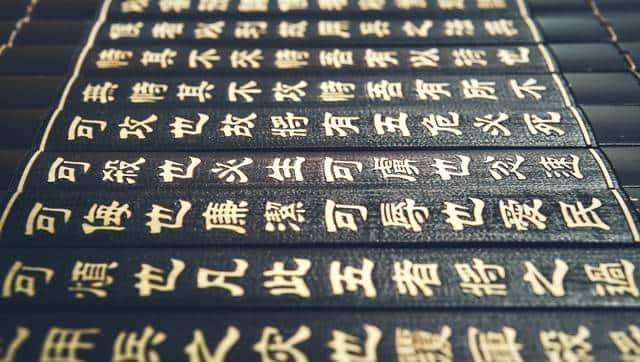 侯者以利故用兵之法
恃其不來恃吾有以待也
無恃其不攻恃吾有所不
可攻也故將有五危必死
可殺也必生可虜也忿速
可侮也廉潔可辱也愛民
可煩也凡此五者將之過
也用兵之災也覆軍殺